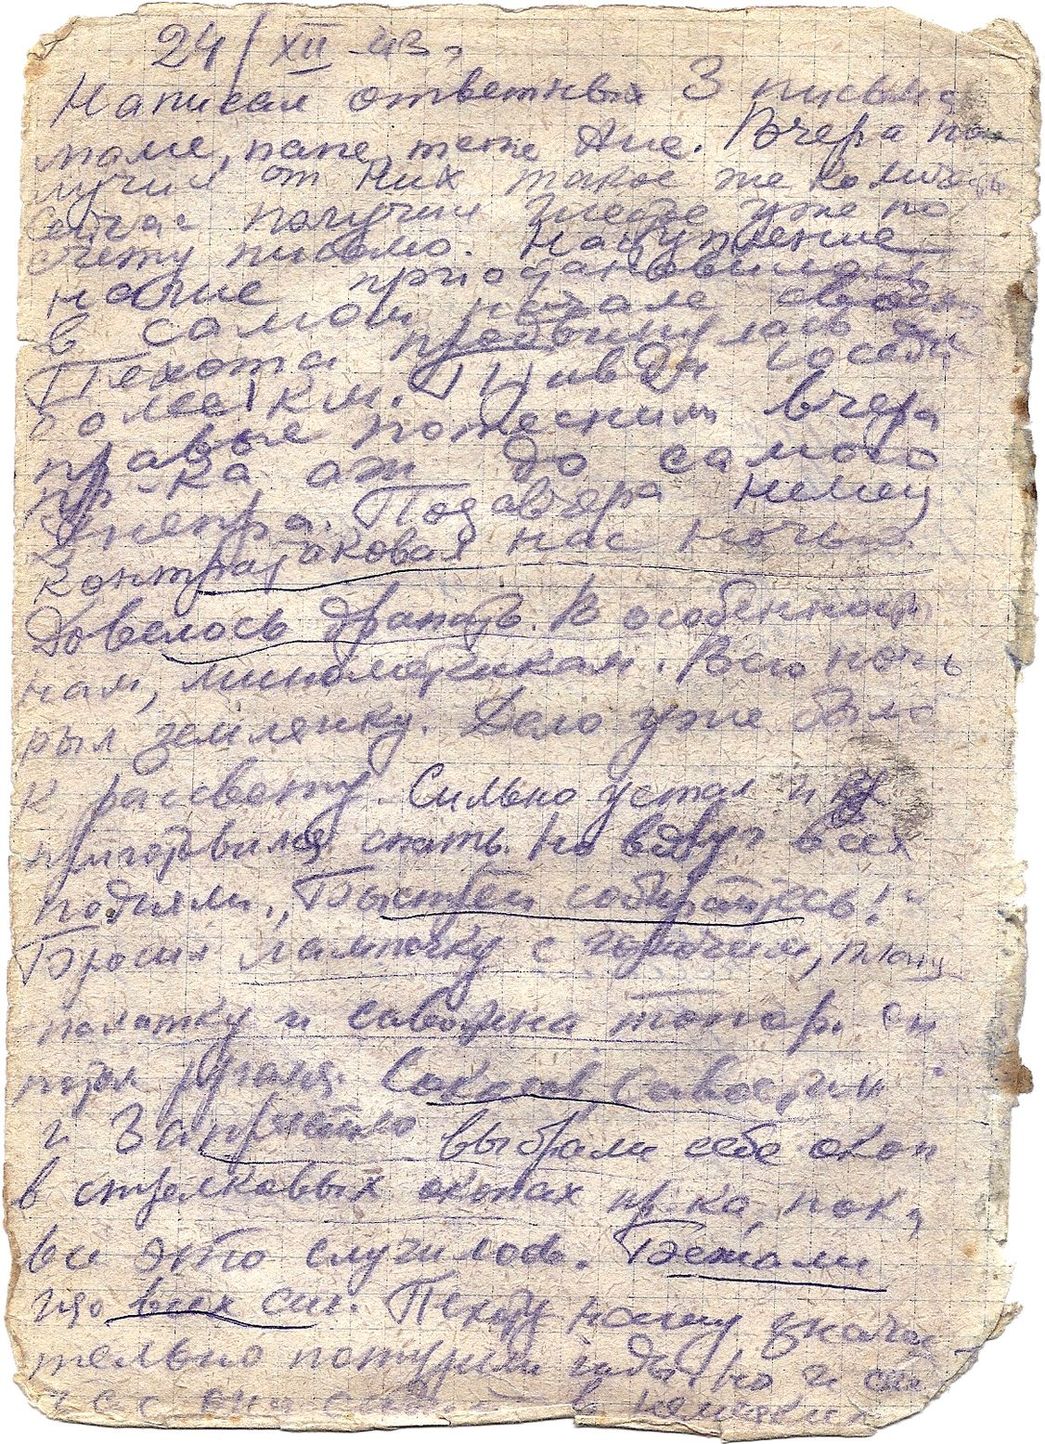 24/XII 43.
Написал ответных 3 письма
маме, папе, тете Ане. Вчера по
лучил от них такое же количес
Сейчас получил уже по
счету письмо. Наступление
наше приостановилось
в самом начале своем
Пехота продвинулась
более км. Дивизи соседи
правые потеснили вчера
пр-ка аж до самого
Днепра. Позавчера немец
контратаковал нас ночью.
Довелось драпать. В особенности
нам, минометчикам. Всю ночь
рыл землянку. Дело уже было
к рассвету. Сильно устал и
приготовился спать. Но вдруг всех
подняли. „Быстрей собирайтесь!“
Бросил лампочку с горючим, плащ
палатку и топор. Он
потом ругался.
и выбрали себе окоп
в стрелковых окопах пр-ка, пока
все это случилось. Бежали
изо всех сил. Пехоту нашу значи
тельно потурили но и сей
час в немецких